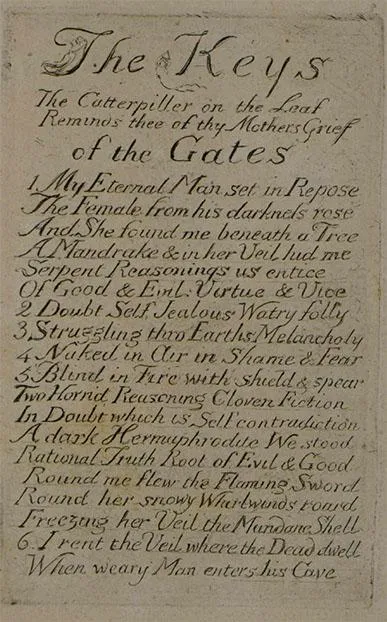 The Keys
The Catterpiller on the Leaf
Reminds thee of thy Mothers Grief
of the Gates
1 My Eternal Man set in Repose
The Female from his darkness rose
And She found me beneath a Tree
A Mandrake & in her Veil hid me
Serpent Reasonings us entice
Of Good & Evil: Virtue & Vice
2 Doubt Self Jealous Watry folly
3 Struggling thro Earths Melancholy
4 Naked in Air in Shame & Fear
5 Blind in Fire with shield & spear
Two Horrid Reasoning Cloven Fiction
In Doubt which is Self contradiction
A dark Hermaphrodite We stood
Rational Truth Root of Evil & Good
Round me flew the Flaming Sword
Round her snowy Whirlwinds roard
Freezing her Veil the Mundane Shell
6 I rent the Veil where the Dead dwell
When weary Man enters his Cave